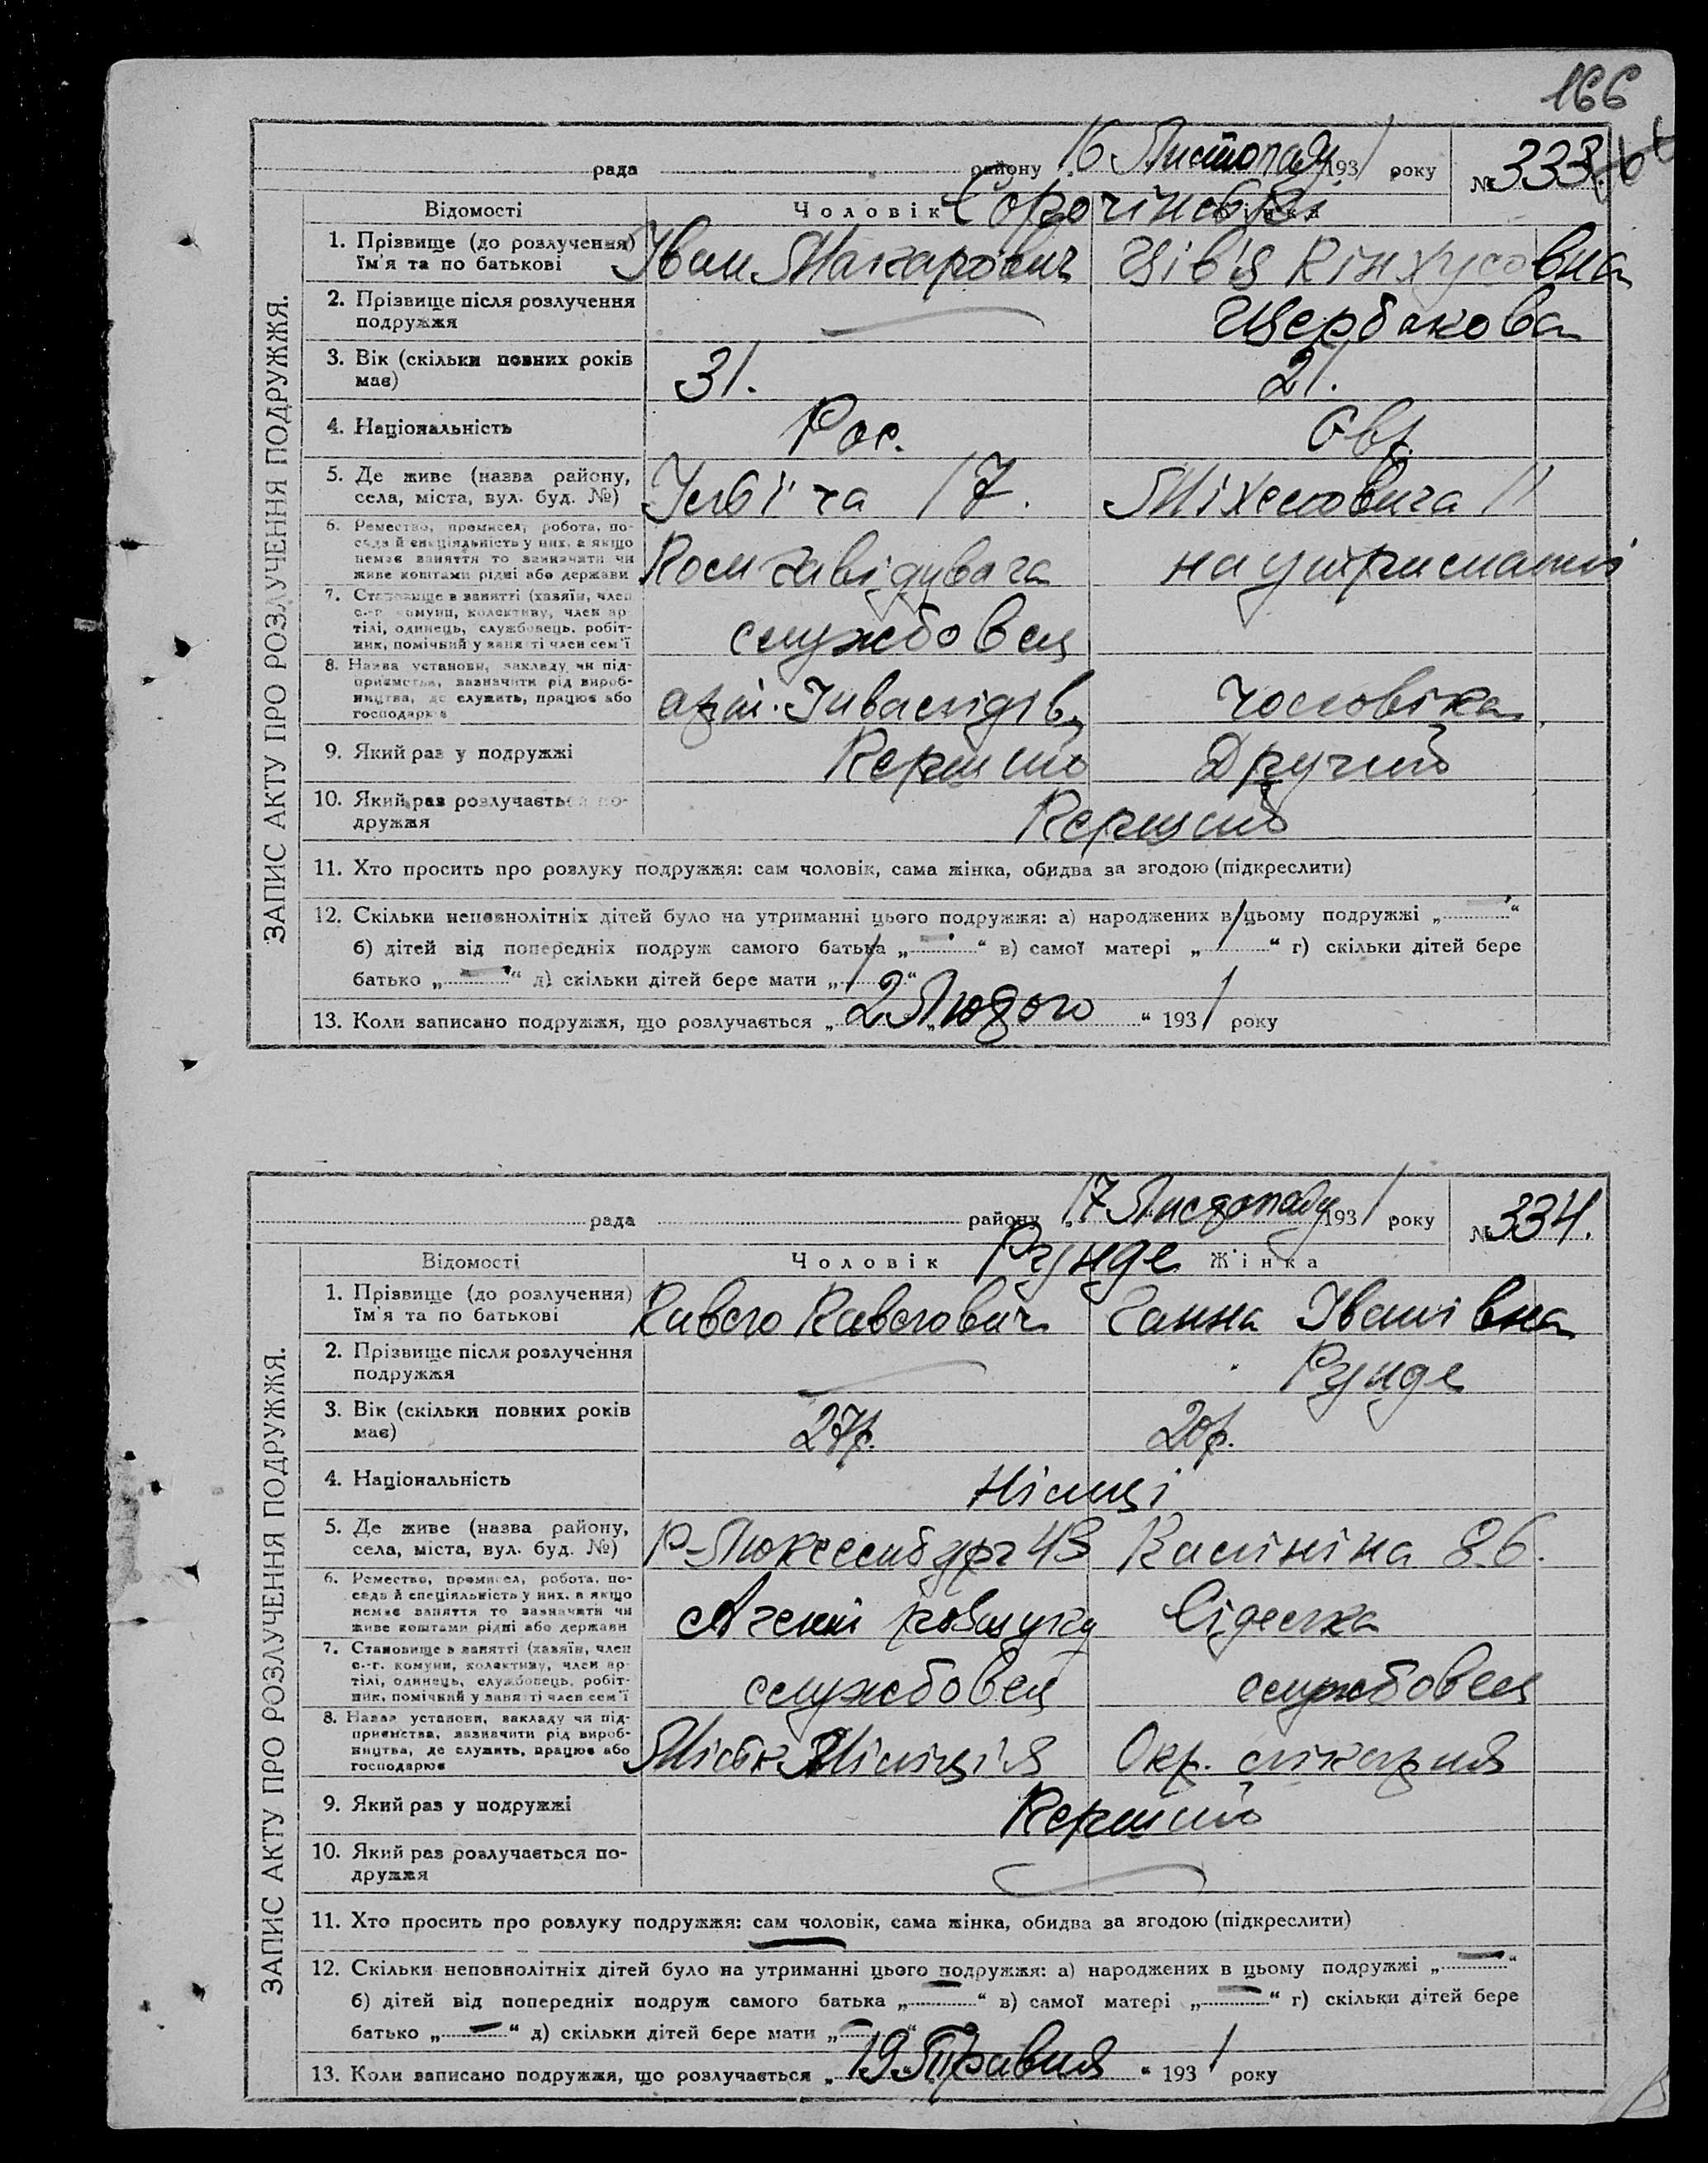 166
рада района 16 Листопаду 1931 року № 333.
Відомості Чоловік Сорочінські Жінка
ЗАПИС АКТУ ПРО РОЗЛУЧЕННЯ ПОДРУЖЖЯ.
1. Прізвище (до розлучення) Ім'я та по батькові Іван Макарович Цівʼя Пінхусовна
2. Прізвище після розлучення подружжя Щербакова
3. Вік (скільки повних років має) 31. 21.
4. Національність Рос. Євр.
5. Де живе (назва району, села, міста, вул. буд. №) 17. Міхеловича 11
6. Ремество, промисел, робота, посада й спеціяльність у них, а якщо немає заняття то зазначати чи живе коштами рідні або держави Пом завідувача на утриманні
7. Становище в занятті (хазяїн, член с.-г. комуни, колективу, член артілі, одинець, службовець, робітник, помічний у занятті член сем'ї службовец
8. Назва установи, закладу чи підприємства, зазначити рід виробництва, де служить, працює або господарює арт. Інвалідів Чоловіка
9. Який раз у подружжі Перший Другий
10. Який раз розлучається подружжя Перший
11. Хто просить про розлуку подружжя: сам чоловік, сама жінка, обидва за згодою (підкреслити)
12. Скільки неповнолітніх дітей було на утриманні цього подружжя: а) народжених в цьому подружжі „ — “
б) дітей від попередніх подруж самого батька „ — “ в) самої матері „ 1 “ г) скільки дітей бере
батько „ — “ д) скільки дітей бере мати „ 1 “
13. Коли записано подружжя, що розлучається „ 2 Лютого “ 1931 року
рада району 17 Листопаду 1931 року № 334.
Відомості Чоловік Рунде Жінка
ЗАПИС АКТУ ПРО РОЗЛУЧЕННЯ ПОДРУЖЖЯ.
1. Прізвище (до розлучення) Ім'я та по батькові Павло Павлович Ганна Іванівна
2. Прізвище після розлучення подружжя Рунде
3. Вік (скільки повних років має) 27р. 20р.
4. Національність Німці
5. Де живе (назва району, села, міста, вул. буд. №) Р-Люксембург 43 Калініна 86.
6. Ремество, промисел, робота, посада й спеціяльність у них, а якщо немає заняття то зазначати чи живе коштами рідні або держави Агент розшуку Сіделка
7. Становище в занятті (хазяїн, член с.-г. комуни, колективу, член артілі, одинець, службовець, робітник, помічний у занятті член сем'ї службовец службовец
8. Назва установи, закладу чи підприємства, зазначити рід виробництва, де служить, працює або господарює Міліція Окр. лікарня
9. Який раз у подружжі Перший
10. Який раз розлучається подружжя
11. Хто просить про розлуку подружжя: сам чоловік, сама жінка, обидва за згодою (підкреслити)
12. Скільки неповнолітніх дітей було на утриманні цього подружжя: а) народжених в цьому подружжі „ — “
б) дітей від попередніх подруж самого батька „ — “ в) самої матері „ — “ г) скільки дітей бере
батько „ — “ д) скільки дітей бере мати „ — “
13. Коли записано подружжя, що розлучається „ 19 Травня “ 1931 року